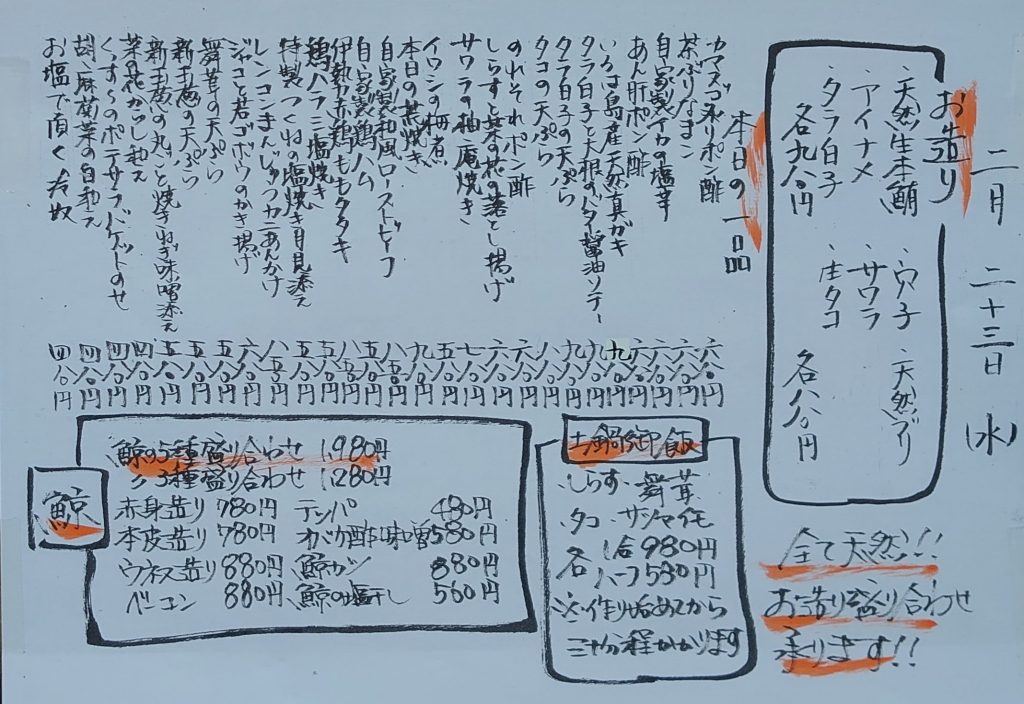 二月 二十三日 (水)
お造り
・天然生本鮪 ・穴子 ・天然ブリ
・アイナメ ・サワラ
・タラ白子 ・庄タコ
各九八〇円 各八八〇円
全て天然!!
お造り盛り合わせ
承ります!!
本日の一品
カマスゴ炙リポン酢 六八〇円
茶ぶりなまこ 六八〇円
自家製イカの塩辛 六八〇円
あん肝ポン酢 六八〇円
いろは島産天然真ガキ 九八〇円
タラ白子と大根のバター醤油ソテー 九八〇円
タラ白子の天ぷら 九八〇円
タコの天ぷら 八八〇円
のれそれポン酢 六八〇円
しらすと菜の花の落とし揚げ 六八〇円
サワラの柚庵焼き
イワシの梅煮 五八〇円
本日の煮焼き 九八〇円
自家製和風ローストビーフ
自家製鶏ハム 五八〇円
伊勢赤鶏ももタタキ
鶏ハラミ塩焼き 五八〇円
特製つくねの塩焼き月見添え
レンコンまんじゅうカニあんかけ 八八〇円
ジャコと若ゴボウのかき揚げ
舞茸の天ぷら 五八〇円
新玉葱の天ぷら
新玉葱の丸ごと焼きねぎ味噌添え 五八〇円
菜の花からし和え 四八〇円
くんすらのポテサラバゲットのせ 四八〇円
胡麻菊菜の白和え 四八〇円
お塩で頂く冷奴 四八〇円
土鍋御飯
・しらす ・舞茸
・タコ ・サツマイモ
各 1合 980円
各 ハーフ 580円
※作り始めてから
三十分程かかります
鯨
鯨の5種盛り合わせ 1,980円
〃 3種盛り合わせ 1,280円
赤身造り 780円 テッパ 480円
本皮造り 780円 オバケ酢味噌 580円
ウネス造り 880円 鯨カツ 880円
ベーコン 880円 鯨の塩干し 560円